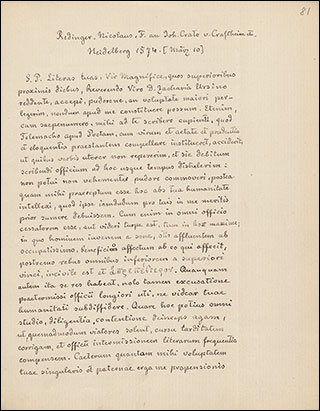 81
Redinger, Nicolaus, F. an Joh. Crato v. Craftheim
Heidelberg 1574. [März 10]
S. P. Literas tuas, Vir Magnifice, quos superioribus
proximis diebus, Reverendo Viro D. Zacharia Ursino
reddente, accepi, pudorene, an voluptate maiori per-
legerim, nondum apud me constituere possum. Etenim,
cum saepenumero, mihi ad te scribere cupienti, quod
Telemacho apud Poetam, cum virum et aetate et prudentia
et eloquentia praestantem compellare instituerit, accideret,
ut quibus verbis uterer non reperirem, et sic debitum
scribendi officium ad hoc usque tempus distulerim:
non potui non vehementer pudore commoveri, postea
quam mihi praereptum esse hoc abs tua humanitate
intellexi, quod ipse iamdudum pro tuis in me meritis
prior sumere debuissem. Cum enim in omni officio
cessatorem esse, aut videri turpe est, tum in hoc maxime;
in quo hominem iuvenem a sene,
occupatissimo, beneficiis affectum ab eo qui affecit,
postremo rebus omnibus inferiorem a superiore
vinci, incivile est et Quanquam
autem ita se res habeat, nolo tamen excusatione
praetermissi officii longiori uti, ne videar tuae
humanitati subdiffidere. Quare hoc potius omni
studio, diligentia, contentione deinceps agam,
ut, quemadmodum viatores solent, cursu tarditatem
corrigam, et officii intermissionem literarum frequentia
compensem. Caeterum quantam mihi voluptatem
tuae singularis et paternae erga me propensionis